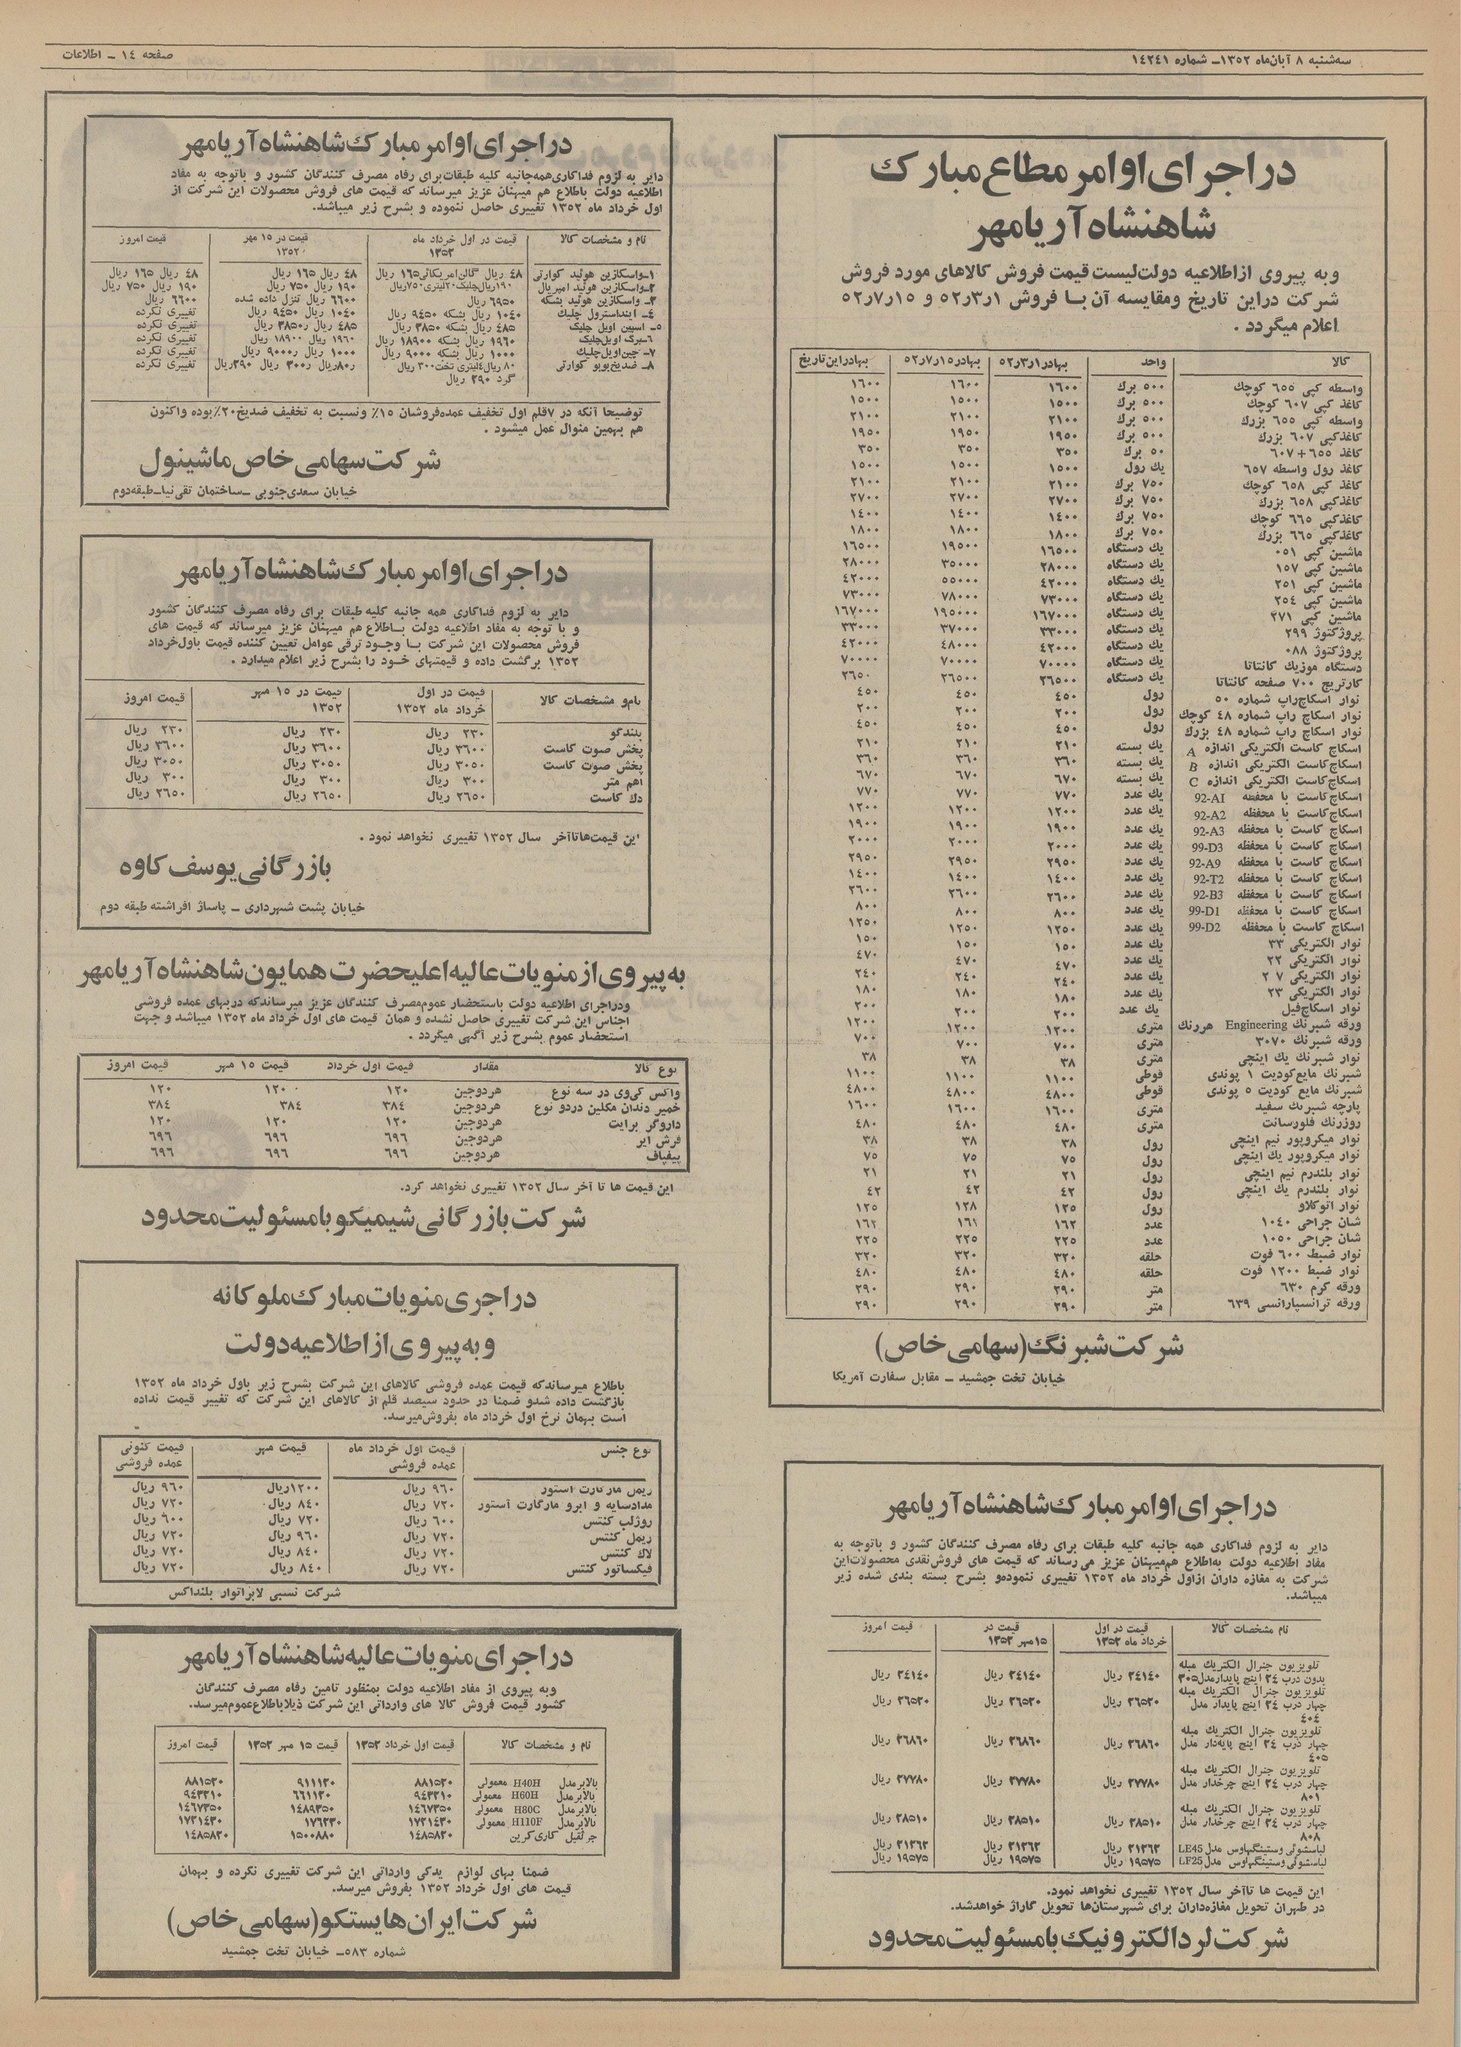 سه‌شنبه ۸ آبان‌ماه ۱۳۵۲ـ شماره ۱۴۲۴۱
صفحه ۱۴ ـ اطلاعات
در اجرای اوامر مطاع مبارک
شاهنشاه آریامهر
و به پیروی از اطلاعیه دولت لیست قیمت فروش کالاهای مورد فروش
شرکت در این تاریخ و مقایسه آن با فروش ۵۲ر۳ر۱ و ۵۲ر۷ر۱۵
اعلام میگردد .
کالا واحد بها در ۵۲ر۳ر۱ بها در ۵۲ر۷ر۱۵ بها در این تاریخ
واسطه کپی ۶۵۵ کوچک ۵۰۰ برک ۱۶۰۰ ۱۶۰۰ ۱۶۰۰
کاغذ کپی ۶۰۷ کوچک ۵۰۰ برک ۱۵۰۰ ۱۵۰۰ ۱۵۰۰
واسطه کپی ۶۵۵ بزرک ۵۰۰ برک ۲۱۰۰ ۲۱۰۰ ۲۱۰۰
کاغذکپی ۶۰۷ بزرک ۵۰۰ برک ۱۹۵۰ ۱۹۵۰ ۱۹۵۰
کاغذ ۶۵۵ + ۶۰۷ ۵۰ برک ۳۵۰ ۳۵۰ ۳۵۰
کاغذ رول واسطه ۶۵۷ یک رول ۱۵۰۰ ۱۵۰۰ ۱۵۰۰
کاغذ کپی ۶۵۸ کوچک ۷۵۰ برک ۲۱۰۰ ۲۱۰۰ ۲۱۰۰
کاغذکپی ۶۵۸ بزرک ۷۵۰ برک ۲۷۰۰ ۲۷۰۰ ۲۷۰۰
کاغذکپی ۶۶۵ کوچک ۷۵۰ برک ۱۴۰۰ ۱۴۰۰ ۱۴۰۰
کاغذکپی ۶۶۵ بزرک ۷۵۰ برک ۱۸۰۰ ۱۸۰۰ ۱۸۰۰
ماشین کپی ۰۵۱ یک دستگاه ۱۶۵۰۰ ۱۹۵۰۰ ۱۶۵۰۰
ماشین کپی ۱۵۷ یک دستگاه ۲۸۰۰۰ ۳۵۰۰۰ ۲۸۰۰۰
ماشین کپی ۲۵۱ یک دستگاه ۴۲۰۰۰ ۵۵۰۰۰ ۴۲۰۰۰
ماشین کپی ۲۵۴ یک دستگاه ۷۳۰۰۰ ۷۸۰۰۰ ۷۳۰۰۰
ماشین کپی ۲۷۱ یک دستگاه ۱۶۷۰۰۰ ۱۹۵۰۰۰ ۱۶۷۰۰۰
پروژکتوژ ۲۹۹ یک دستگاه ۳۳۰۰۰ ۳۷۰۰۰ ۳۳۰۰۰
پروژکتوژ ۰۸۸ یک دستگاه ۴۲۰۰۰ ۴۸۰۰۰ ۴۲۰۰۰
دستگاه موزیک کانتاتا یک دستگاه ۷۰۰۰۰ ۷۰۰۰۰ ۷۰۰۰۰
کارتریج ۷۰۰ صفحه کانتاتا یک دستگاه ۲۶۵۰۰ ۲۶۵۰۰ ۲۶۵۰
نوار اسکاچ‌راپ شماره ۵۰ رول ۴۵۰ ۴۵۰ ۴۵۰
نوار اسکاچ راپ شماره ۴۸ کوچک رول ۲۰۰ ۲۰۰ ۲۰۰
نوار اسکاچ راپ شماره ۴۸ بزرک رول ۴۵۰ ۴۵۰ ۴۵۰
اسکاچ کاست الکتریکی اندازه A یک بسته ۲۱۰ ۲۱۰ ۲۱۰
اسکاچ‌کاست الکتریکی اندازه B یک بسته ۳۶۰ ۳۶۰ ۳۶۰
اسکاچ‌کاست الکتریکی اندازه C یک بسته ۶۷۰ ۶۷۰ ۶۷۰
اسکاچ‌کاست با محفظه 92-A1 یک عدد ۷۷۰ ۷۷۰ ۷۷۰
اسکاچ کاست با محفظه 92-A2 یک عدد ۱۲۰۰ ۱۲۰۰ ۱۲۰۰
اسکاچ کاست با محفظه 92-A3 یک عدد ۱۹۰۰ ۱۹۰۰ ۱۹۰۰
اسکاچ کاست با محفظه 99-D3 یک عدد ۲۰۰۰ ۲۰۰۰ ۲۰۰۰
اسکاچ کاست با محفظه 92-A9 یک عدد ۲۹۵۰ ۲۹۵۰ ۲۹۵۰
اسکاچ کاست با محفظه 92-T2 یک عدد ۱۴۰۰ ۱۴۰۰ ۱۴۰۰
اسکاچ کاست با محفظه 92-B3 یک عدد ۲۶۰۰ ۲۶۰۰ ۲۶۰۰
اسکاچ کاست با محفظه 99-D1 یک عدد ۸۰۰ ۸۰۰ ۸۰۰
اسکاچ کاست با محفظه 99-D2 یک عدد ۱۲۵۰ ۱۲۵۰ ۱۲۵۰
نوار الکتریکی ۳۳ یک عدد ۱۵۰ ۱۵۰ ۱۵۰
نوار الکتریکی ۲۲ یک عدد ۴۷۰ ۴۷۰ ۴۷۰
نوار الکتریکی ۲۷ یک عدد ۲۴۰ ۲۴۰ ۲۴۰
نوار الکتریکی ۲۳ یک عدد ۱۸۰ ۱۸۰ ۱۸۰
نوار اسکاچ‌فیل یک عدد ۲۰۰ ۲۰۰ ۲۰۰
ورقه شبرنک Engineering هررنک متری ۱۲۰۰ ۱۲۰۰ ۱۲۰۰
ورقه شبرنک ۳۰۷۰ متری ۷۰۰ ۷۰۰ ۷۰۰
نوار شبرنک یک اینچی متری ۳۸ ۳۸ ۳۸
شبرنک مایع‌کودیت ۱ پوندی قوطی ۱۱۰۰ ۱۱۰۰ ۱۱۰۰
شبرنک مایع کودیت ۵ پوندی قوطی ۴۸۰۰ ۴۸۰۰ ۴۸۰۰
پارچه شبرنک سفید متری ۱۶۰۰ ۱۶۰۰ ۱۶۰۰
روزرنک فلورسانت متری ۴۸۰ ۴۸۰ ۴۸۰
نوار میکروپور نیم اینچی رول ۳۸ ۳۸ ۳۸
نوار میکروپور یک اینچی رول ۷۵ ۷۵ ۷۵
نوار بلندرم نیم اینچی رول ۲۱ ۲۱ ۲۱
نوار بلندرم یک اینچی رول ۴۲ ۴۲ ۴۲
نوار اتوکلاو رول ۱۲۵ ۱۲۸ ۱۲۵
شان جراحی ۱۰۴۰ عدد ۱۶۲ ۱۶۲ ۱۶۲
شان جراحی ۱۰۵۰ عدد ۲۲۵ ۲۲۵ ۲۲۵
نوار ضبط ۶۰۰ فوت حلقه ۳۲۰ ۳۲۰ ۳۲۰
نوار ضبط ۱۲۰۰ فوت حلقه ۴۸۰ ۴۸۰ ۴۸۰
ورقه کرم ۶۳۰ متر ۲۹۰ ۲۹۰ ۲۹۰
ورقه ترانسپارانسی ۶۳۹ متر ۲۹۰ ۲۹۰ ۲۹۰
شرکت شبرنگ (سهامی خاص)
خیابان تخت جمشید ـ مقابل سفارت آمریکا
در اجرای اوامر مبارک شاهنشاه آریامهر
دایر به لزوم فداکاری همه جانبه کلیه طبقات برای رفاه مصرف کنندگان کشور و باتوجه به
مفاد اطلاعیه دولت به‌اطلاع هم‌میهنان عزیز می رساند که قیمت های فروش‌نقدی محصولات‌این
شرکت به مغازه داران ازاول خرداد ماه ۱۳۵۲ تغییری ننموده‌و بشرح بسته بندی شده زیر
میباشد.
نام مشخصات کالا قیمت در اول خرداد ماه ۱۳۵۲ قیمت در ۱۵ مهر ۱۳۵۲ قیمت امروز
تلویزیون جنرال الکتریک مبله
بدون درب ۲۴ اینچ پایدار مدل ۳۰۵ ۲۴۱۴۰ ریال ۲۴۱۴۰ ریال ۲۴۱۴۰ ریال
تلویزیون جنرال الکتریک مبله
چهار درب ۲۴ اینچ پایدار مدل ۲۶۵۲۰ ریال ۲۶۵۲۰ ریال ۲۶۵۲۰ ریال
۴۰۴
تلویزیون جنرال الکتریک مبله
چهار درب ۲۴ اینچ پایه‌دار مدل ۲۶۸۶۰ ریال ۲۶۸۶۰ ریال ۲۶۸۶۰ ریال
۴۰۵
تلویزیون جنرال الکتریک مبله
چهار درب ۲۴ اینچ چرخدار مدل ۲۷۷۸۰ ریال ۲۷۷۸۰ ریال ۲۷۷۸۰ ریال
۸۰۱
تلویزیون جنرال الکتریک مبله
چهار درب ۲۴ اینچ چرخدار مدل ۲۸۵۱۰ ریال ۲۸۵۱۰ ریال ۲۸۵۱۰ ریال
۸۰۸
لباسشوئی وستینگهاوس مدل LE45 ۲۱۲۶۲ ریال ۲۱۲۶۲ ریال ۲۱۲۶۲ ریال
لباسشوئی وستینگهاوس مدل LF25 ۱۹۵۷۵ ریال ۱۹۵۷۵ ریال ۱۹۵۷۵ ریال
این قیمت ها تاآخر سال ۱۳۵۲ تغییری نخواهد نمود.
در طهران تحویل مغازه‌داران برای شهرستان‌ها تحویل گاراژ خواهدشد.
شرکت لرد الکترونیک با مسئولیت محدود
در اجرای اوامر مبارک شاهنشاه آریامهر
دایر به لزوم فداکاری همه‌جانبه کلیه طبقات برای رفاه مصرف کنندگان کشور و باتوجه به مفاد
اطلاعیه دولت باطلاع هم میهنان عزیز میرساند که قیمت های فروش محصولات این شرکت از
اول خرداد ماه ۱۳۵۲ تغییری حاصل ننموده و بشرح زیر میباشد.
نام و مشخصات کالا قیمت در اول خرداد ماه ۱۳۵۲ قیمت در ۱۵ مهر ۱۳۵۲ قیمت امروز
۱ـواسکازین هولید کوارتی ۴۸ ریال گالن‌امریکائی ۱۶۵ریال ۴۸ ریال ۱۶۵ ریال ۴۸ ریال ۱۶۵ ریال
۲ـواسکازین هولید امپریال ۱۹۰ریال‌چلیک۲۰لیتری۷۵۰ریال ۱۹۰ ریال ۷۵۰ ریال ۱۹۰ ریال ۷۵۰ ریال
۳ـ واسکازین هولید بشکه ۶۹۵۰ ریال ۶۶۰۰ ریال تنزل داده شده ۶۶۰۰ ریال
۴ـ اینداسترول چلیک ۱۰۴۰ ریال بشکه ۹۴۵۰ ریال ۱۰۴۰ ریال ۹۴۵۰ ریال تغییری نکرده
۵ـ اسپین اویل چلیک ۴۸۵ ریال بشکه ۳۸۵۰ ریال ۴۸۵ ریال ۳۸۵۰ر ریال تغییری نکرده
۶ـبرک اویل‌چلیک ۱۹۶۰ ریال بشکه ۱۸۹۰۰ ریال ۱۹۶۰ ریال ۱۸۹۰۰ ریال تغییری نکرده
۷ـ جین‌اویل‌چلیک ۱۰۰۰ ریال بشکه ۹۰۰۰ ریال ۱۰۰۰ ریال ۹۰۰۰ر ریال تغییری نکرده
۸ـ ضدیخ‌یویو کوارتی ۸۰ ریال۴لیتری تخت۳۰۰ ریال ۸۰ر‌ریال ۳۰۰ر ریال ۲۹۰ریال تغییری نکرده
گرد ۲۹۰ ریال
توضیحا آنکه در ۷قلم اول تخفیف عمده‌فروشان ۱۵٪ ونسبت به تخفیف ضدیخ۲۰٪بوده واکنون
هم بهمین منوال عمل میشود .
شرکت سهامی خاص ماشینول
خیابان سعدی‌جنوبی ـساختمان تقی‌نیاـطبقه‌دوم
در اجرای اوامر مبارک شاهنشاه آریامهر
دایر به لزوم فداکاری همه جانبه کلیه طبقات برای رفاه مصرف کنندگان کشور
و با توجه به مفاد اطلاعیه دولت باطلاع هم میهنان عزیز میرساند که قیمت های
فروش محصولات این شرکت با وجود ترقی عوامل تعیین کننده قیمت باول‌خرداد
۱۳۵۲ برگشت داده و قیمتهای خود را بشرح زیر اعلام میدارد .
نام‌و مشخصات کالا قیمت در اول خرداد ماه ۱۳۵۲ قیمت در ۱۵ مهر ۱۳۵۲ قیمت امروز
بلندگو ۲۳۰ ریال ۲۳۰ ریال ۲۳۰ ریال
پخش صوت کاست ۳۶۰۰ ریال ۳۶۰۰ ریال ۳۶۰۰ ریال
پخش صوت کاست ۳۰۵۰ ریال ۳۰۵۰ ریال ۳۰۵۰ ریال
اهم متر ۳۰۰ ریال ۳۰۰ ریال ۳۰۰ ریال
دک کاست ۲۶۵۰ ریال ۲۶۵۰ ریال ۲۶۵۰ ریال
این قیمت‌هاتاآخر سال ۱۳۵۲ تغییری نخواهد نمود .
بازرگانی یوسف کاوه
خیابان پشت شهرداری ـ پاساژ افراشته طبقه دوم
به پیروی از منویات عالیه اعلیحضرت همایون شاهنشاه آریامهر
ودراجرای اطلاعیه دولت باستحضار عموم‌مصرف کنندگان عزیز میرساندکه دربهای عمده فروشی
اجناس این شرکت تغییری حاصل نشده و همان قیمت های اول خرداد ماه ۱۳۵۲ میباشد و جهت
استحضار عموم بشرح زیر آگهی میگردد .
نوع کالا مقدار قیمت اول خرداد قیمت ۱۵ مهر قیمت امروز
واکس کی‌وی در سه نوع هردوجین ۱۲۰ ۱۲۰ ۱۲۰
خمیر دندان مکلین دردو نوع هردوجین ۳۸۴ ۳۸۴ ۳۸۴
داروگر برایت هردوجین ۱۲۰ ۱۲۰ ۱۲۰
فرش ایر هردوجین ۶۹۶ ۶۹۶ ۶۹۶
پیفپاف هردوجین ۶۹۶ ۶۹۶ ۶۹۶
این قیمت ها تا آخر سال ۱۳۵۲ تغییری نخواهد کرد.
شرکت بازرگانی شیمیکو با مسئولیت محدود
در اجری منویات مبارک ملوکانه
و به پیروی از اطلاعیه دولت
باطلاع میرساندکه قیمت عمده فروشی کالاهای این شرکت بشرح زیر باول خرداد ماه ۱۳۵۲
بازگشت داده شدو ضمنا در حدود سیصد قلم از کالاهای این شرکت که تغییر قیمت نداده
است بهمان نرخ اول خرداد ماه بفروش‌میرسد.
نوع جنس قیمت اول خرداد ماه عمده فروشی قیمت مهر قیمت کنونی عمده فروشی
ریمل مارگارت استور ۹۶۰ ریال ۱۲۰۰ریال ۹۶۰ ریال
مدادسایه و ابرو مارگارت آستور ۷۲۰ ریال ۸۴۰ ریال ۷۲۰ ریال
روژلب کنتس ۶۰۰ ریال ۷۲۰ ریال ۶۰۰ ریال
ریمل کنتس ۷۲۰ ریال ۹۶۰ ریال ۷۲۰ ریال
لاک کنتس ۷۲۰ ریال ۸۴۰ ریال ۷۲۰ ریال
فیکساتور کنتس ۷۲۰ ریال ۸۴۰ ریال ۷۲۰ ریال
شرکت نسبی لابراتوار بلنداکس
در اجرای منویات عالیه شاهنشاه آریامهر
وبه پیروی از مفاد اطلاعیه دولت بمنظور تامین رفاه مصرف کنندگان
کشور قیمت فروش کالا های وارداتی این شرکت ذیلاباطلاع‌عموم‌میرسد.
نام و مشخصات کالا قیمت اول خرداد ۱۳۵۲ قیمت ۱۵ مهر ۱۳۵۲ قیمت امروز
بالابر مدل H40H معمولی ۸۸۱۵۲۰ ۹۱۱۱۲۰ ۸۸۱۵۲۰
بالابر مدل H60H معمولی ۹۴۳۲۱۰ ۶۶۱۱۲۰ ۹۴۳۲۱۰
بالابر مدل H80C معمولی ۱۴۶۷۳۵۰ ۱۴۸۹۳۵۰ ۱۴۶۷۳۵۰
بالابر مدل H110F معمولی ۱۷۲۱۴۳۰ ۱۷۶۲۳۰ ۱۷۲۱۴۳۰
جرثقیل گاری‌کرین ۱۴۸۵۸۲۰ ۱۵۰۰۸۸۰ ۱۴۸۵۸۲۰
ضمنا بهای لوازم یدکی وارداتی این شرکت تغییری نکرده و بهمان
قیمت های اول خرداد ۱۳۵۲ بفروش میرسد.
شرکت ایران هایستکو (سهامی خاص)
شماره ۵۸۳ـ خیابان تخت جمشید